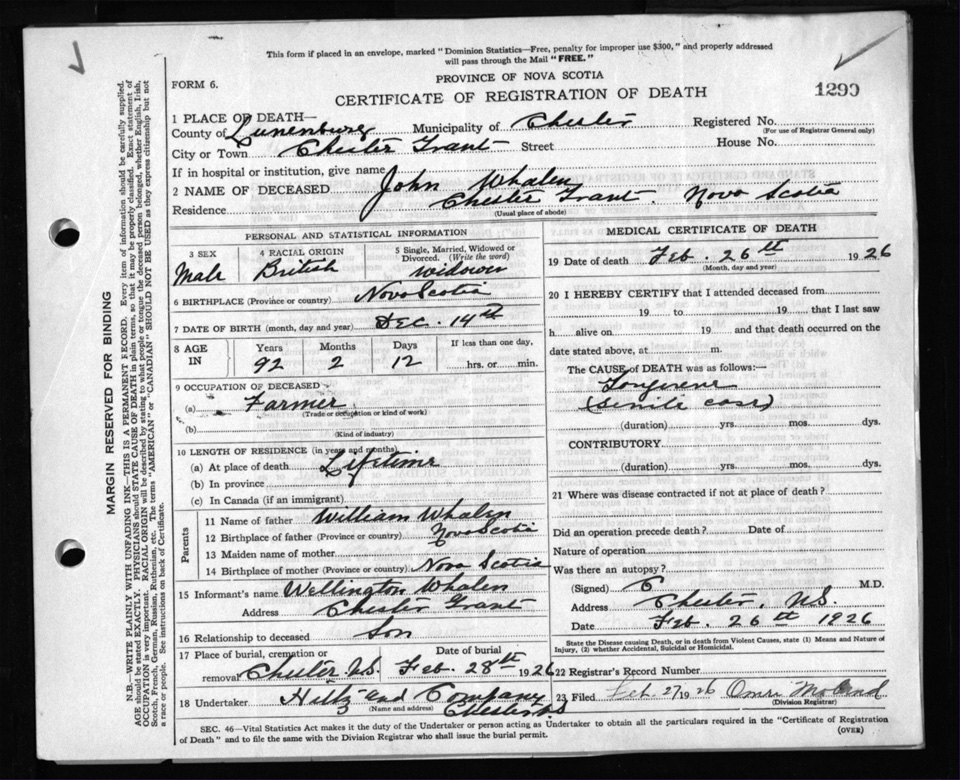 This form if placed in an envelope, marked "Dominion Statistics—Free, penalty for improper use $300," and properly addressed
will pass through the Mail "FREE."
FORM 6.
PROVINCE OF NOVA SCOTIA
CERTIFICATE OF REGISTRATION OF DEATH
1299
1 PLACE OF DEATH—
County of Lunenburg Municipality of Chester Registered No.
(For use of Registrar General only)
City or Town Chester Grant Street House No.
If in hospital or institution, give name
2 NAME OF DECEASED John Whalen
Residence Chester Grant. Nova Scotia
(Usual place of abode)
PERSONAL AND STATISTICAL INFORMATION
3 SEX Male
4 RACIAL ORIGIN British
5 Single, Married, Widowed or Divorced. (Write the word) widower
6 BIRTHPLACE (Province or country) Nova Scotia
7 DATE OF BIRTH (month, day and year) Dec. 14th
8 AGE IN Years Months Days If less than one day,
92 2 12 hrs. or min.
9 OCCUPATION OF DECEASED
(a) Farmer
(Trade or occupation or kind of work)
(b)
(Kind of industry)
10 LENGTH OF RESIDENCE (in years and months)
(a) At place of death Lifetime
(b) In province
(c) In Canada (if an immigrant)
Parents
11 Name of father William Whalen
12 Birthplace of father (Province or country) Nova Scotia
13 Maiden name of mother
14 Birthplace of mother (Province or country) Nova Scotia
15 Informant's name Wellington Whalen
Address Chester Grant
16 Relationship to deceased Son
17 Place of burial, cremation or removal Chester N.S. Date of burial Feb. 28th 1926
18 Undertaker Hiltz and Company
(Name and address) Chester
MEDICAL CERTIFICATE OF DEATH
19 Date of death Feb. 26th 1926
(Month, day and year)
20 I HEREBY CERTIFY that I attended deceased from
19 to 19 that I last saw
h alive on 19 and that death occurred on the
date stated above, at m.
The CAUSE of DEATH was as follows:—
(senile case)
(duration) yrs. mos. dys.
CONTRIBUTORY
(duration) yrs. mos. dys.
21 Where was disease contracted if not at place of death?
Did an operation precede death? Date of
Nature of operation
Was there an autopsy?
(Signed) M.D.
Address Chester, N.S.
Date Feb. 26th 1926
State the Disease causing Death, or in death from Violent Causes, state (1) Means and Nature of
Injury, (2) whether Accidental, Suicidal or Homicidal.
22 Registrar's Record Number
23 Filed Feb 27 1926 Omri
(Division Registrar)
SEC. 46—Vital Statistics Act makes it the duty of the Undertaker or person acting as Undertaker to obtain all the particulars required in the "Certificate of Registration
of Death" and to file the same with the Division Registrar who shall issue the burial permit.
(OVER)
MARGIN RESERVED FOR BINDING
N.B.—WRITE PLAINLY WITH UNFADING INK—THIS IS A PERMANENT RECORD. Every item of information should be carefully supplied.
AGE should be stated EXACTLY. PHYSICIANS should STATE CAUSE OF DEATH in plain terms, so that it may be properly classified. Exact statement of
OCCUPATION is very important. RACIAL ORIGIN will be described by stating to what people or tongue the deceased person belonged, whether English, Irish,
Scotch, French, German, Russian, Ruthenian, etc. The terms "AMERICAN" or "CANADIAN" SHOULD NOT BE USED as they express citizenship but not
a race or people. See instructions on back of Certificate.